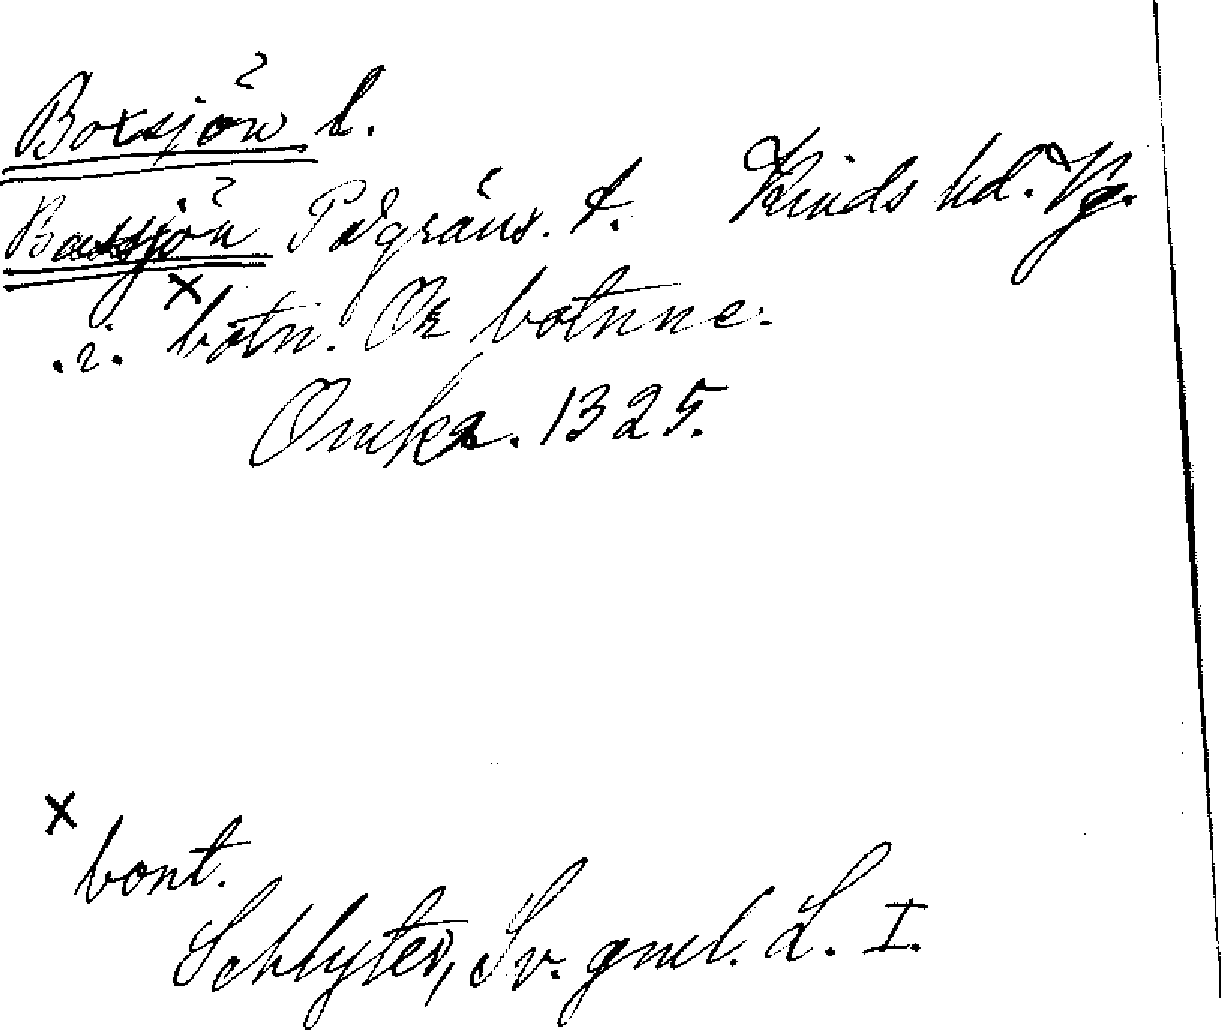 Boxsjön? l.
Bassjön? Pålgräns. t. Kinds hd. Vg.
.i. × botn. Oc botnne.
Omkr. 1325.
× bont.
Schlyter, Sv. gml. L. I.